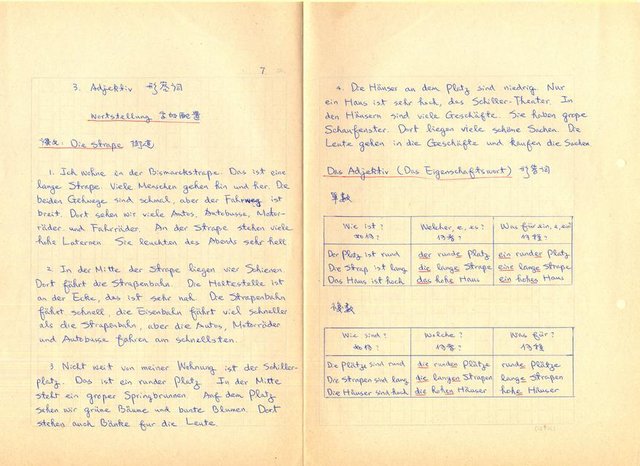 7
3. Adjektiv 形容词
Wortstellung 字的配置
课文: Die Strape 街道
1. Ich wohne in der Bismarckstrape. Das ist eine
lange Strape. Viele Menschen gehen hin und her. Die
beiden Gehwege sind schmal, aber der Fahrweg ist
breit. Dort sehen wir viele Autos, Autobusse, Motor-
räder und Fahrräder. An der Strape stehen viele
hohe Laternen Sie leuchten des Abends sehr hell
2. In der Mitte der Strape liegen vier Schienen.
Dort fährt die Strapenbahn. Die Haltestelle ist
an der Ecke, das ist sehr nah. Die Strapenbahn
fährt schnell die Eisenbahn fährt viel schneller
als die Strapenbahn, aber die Autos, Motorräder
und Autobusse fahren am schnellsten.
3 Nicht weit von meiner Wohnung ist der Schiller-
platz. Das ist ein runder Platz. In der Mitte
steht ein groper Springbrunnen Auf dem Platz
sehen wir grüne Bäume und bunte Blumen. Dort
stehen auch Bänke für die Leute.
4. Die Häuser an dem Platz sind niedrig. Nur
ein Haus ist sehr hoch, das Schiller-Theater. In
den Häusern sind viele Geschäfte. Sie haben grope
Schaufenster. Dort liegen viele schöne Sachen. Die
Leute gehen in die Geschäfte und kaufen die Sachen
Das Adjektiv (Das Eigenschaftswort) 形容词
单数
Wie ist? Welcher, e, es? Was für ein, e, ein?
如何? 何者? 何种?
Der Platz ist rund der runde Platz ein runder Platz
Die Strap ist lang die lange Strape eine lange Strape
Das Haus ist hoch das hohe Haus ein hohes Haus
複数
Wie sind? Welche? Was für?
如何? 何者? 何种?
Die Plätze sind rund die runden Plätze runde Plätze
Die Strapen sind lang die langen Strapen lange Strapen
Die Häuser sind hoch die hohen Häuser hohe Häuser